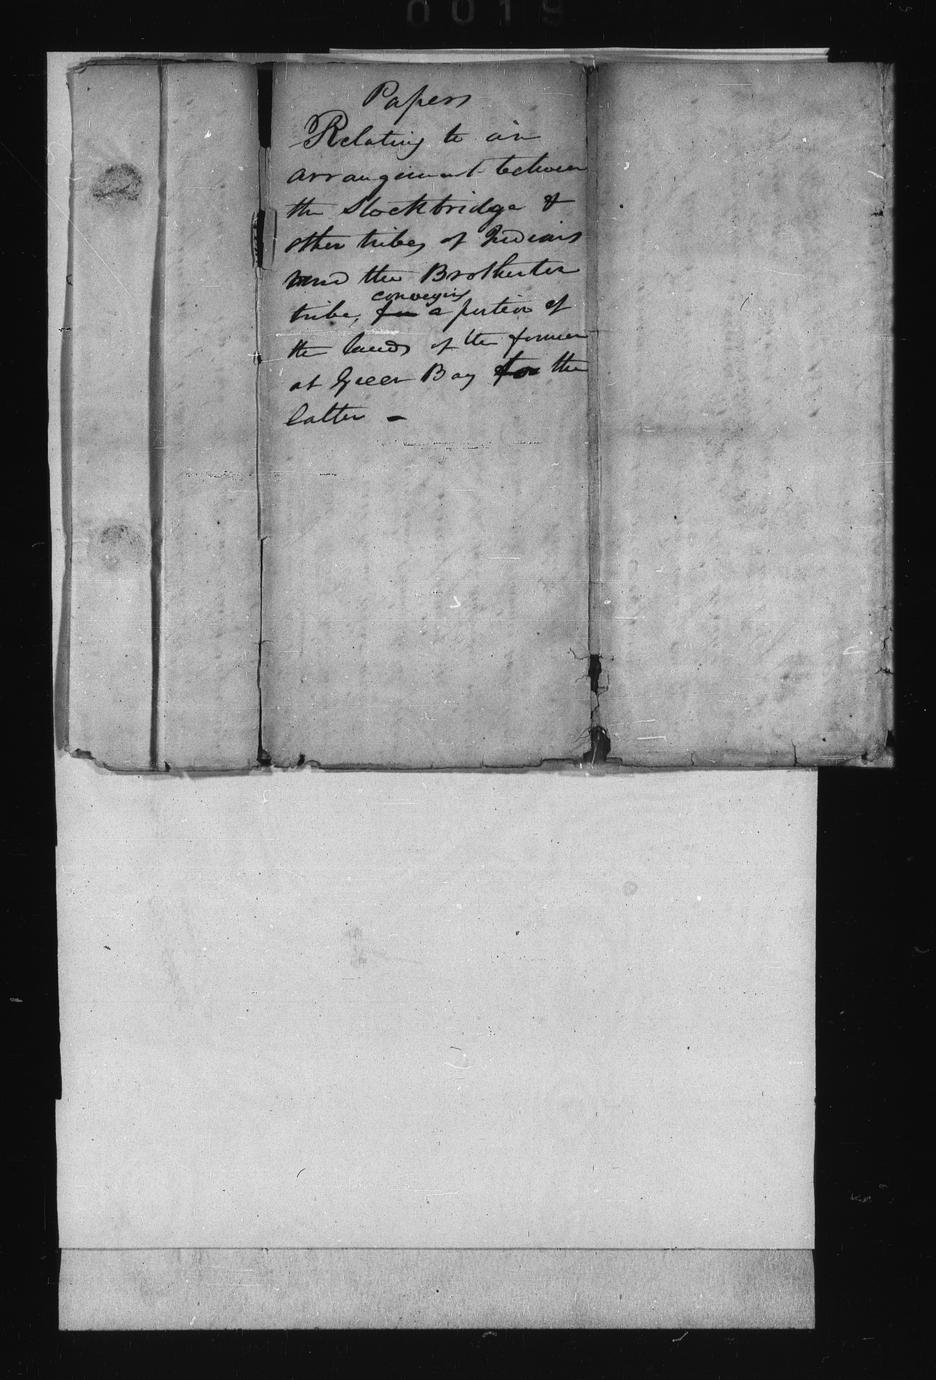 0019
Papers
Relating to an
arrangement between
the Stockbridge &
other tribes of Indians
and the Brotherton
tribe, conveying a portion of
the lands of the former
at Green Bay to the
latter -